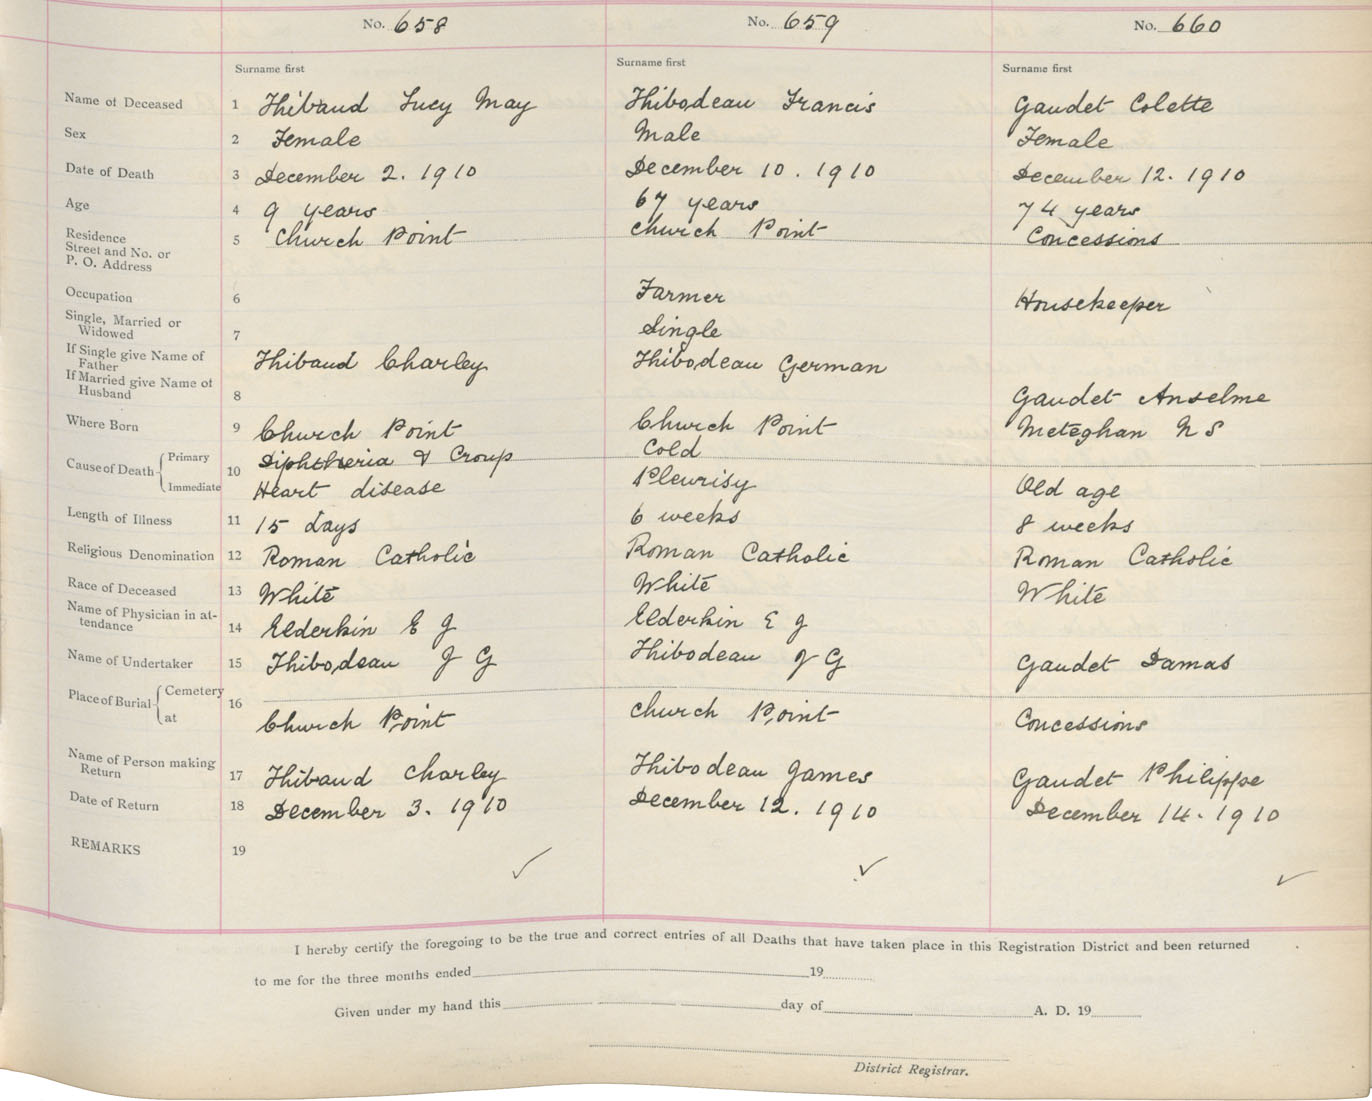 No. 658 No. 659 No. 660
Surname first Surname first Surname first
Name of Deceased 1 Thibaud Lucy May Thibodeau Francis Gaudet Colette
Sex 2 Female Male Female
Date of Death 3 December 2. 1910 December 10. 1910 December 12. 1910
Age 4 9 years 67 years 74 years
Residence Street and No. or P. O. Address 5 Church Point Church Point Concessions
Occupation 6 Farmer Housekeeper
Single, Married or Widowed 7 Single
If Single give Name of Father Thibaud Charley Thibodeau German
If Married give Name of Husband 8 Gaudet Anselme
Where Born 9 Church Point Church Point Meteghan N S
Cause of Death Primary 10 Diphtheria & Croup Cold
Immediate Heart disease Pleurisy Old age
Length of Illness 11 15 days 6 weeks 8 weeks
Religious Denomination 12 Roman Catholic Roman Catholic Roman Catholic
Race of Deceased 13 White White White
Name of Physician in attendance 14 Elderkin E J Elderkin E J
Name of Undertaker 15 Thibodeau J G Thibodeau J G Gaudet Damas
Place of Burial Cemetery 16
at Church Point Church Point Concessions
Name of Person making Return 17 Thibaud Charley Thibodeau James Gaudet Philippe
Date of Return 18 December 3. 1910 December 12. 1910 December 14. 1910
REMARKS 19
I hereby certify the foregoing to be the true and correct entries of all Deaths that have taken place in this Registration District and been returned
to me for the three months ended 19
Given under my hand this day of A. D. 19
District Registrar.